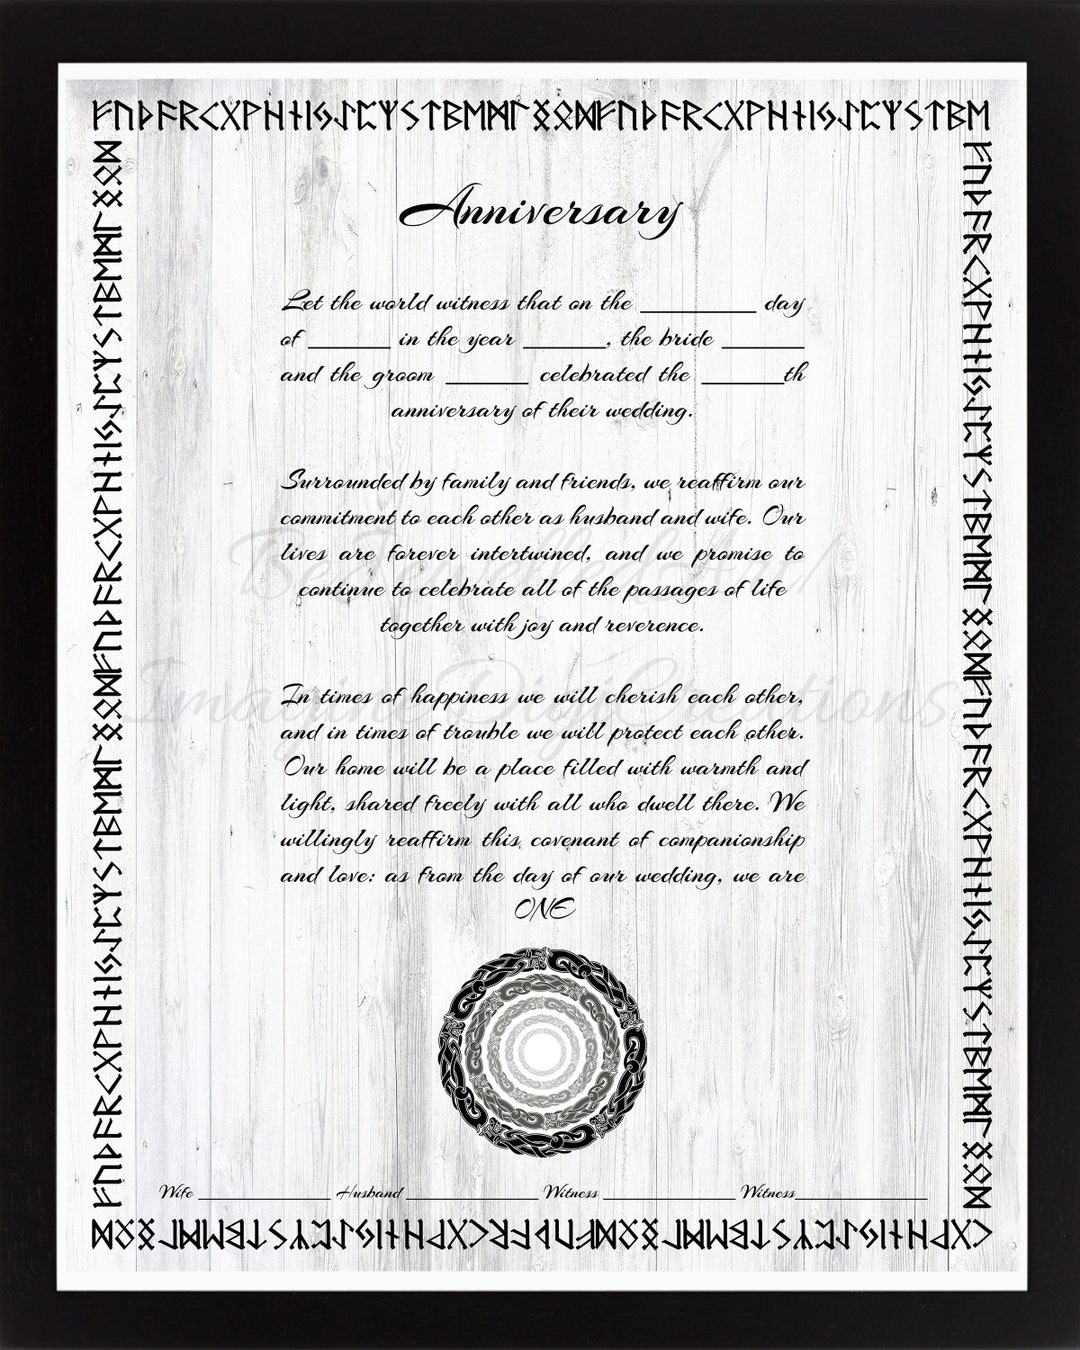 ᚠᚢᚦᚨᚱᚲᚷᚹᚺᚾᛁᛃᛇᛈᛉᛊᛏᛒᛖᛗᛚᛜᛟᛞᚠᚢᚦᚨᚱᚲᚷᚹᚺᚾᛁᛃᛇᛈᛉᛊᛏᛒᛖ
ᚠᚢᚦᚨᚱᚲᚷᚹᚺᚾᛁᛃᛇᛈᛉᛊᛏᛒᛖᛗᛚᛜᛟᛞᚠᚢᚦᚨᚱᚲᚷᚹᚺᚾᛁᛃᛇᛈᛉᛊᛏᛒᛖᛗᛚᛜᛟᛞ
Anniversary
Let the world witness that on the ________ day
of ______ in the year ______, the bride ______
and the groom ______ celebrated the ______th
anniversary of their wedding.
Surrounded by family and friends, we reaffirm our
commitment to each other as husband and wife. Our
lives are forever intertwined, and we promise to
continue to celebrate all of the passages of life
together with joy and reverence.
In times of happiness we will cherish each other,
and in times of trouble we will protect each other.
Our home will be a place filled with warmth and
light, shared freely with all who dwell there. We
willingly reaffirm this covenant of companionship
and love: as from the day of our wedding, we are
ONE
ImagineDigiCreations
Wife ____________ Husband ____________ Witness ____________ Witness ____________
ᚠᚢᚦᚨᚱᚲᚷᚹᚺᚾᛁᛃᛇᛈᛉᛊᛏᛒᛖᛗᛚᛜᛟᛞᚠᚢᚦᚨᚱᚲᚷᚹᚺᚾᛁᛃᛇᛈᛉᛊᛏᛒᛖᛗᛚᛜᛟᛞ
ᚲᚷᚹᚺᚾᛁᛃᛇᛈᛉᛊᛏᛒᛖᛗᛚᛜᛟᛞᚠᚢᚦᚨᚱᚲᚷᚹᚺᚾᛁᛃᛇᛈᛉᛊᛏᛒᛖᛗᛚᛜᛟᛞ